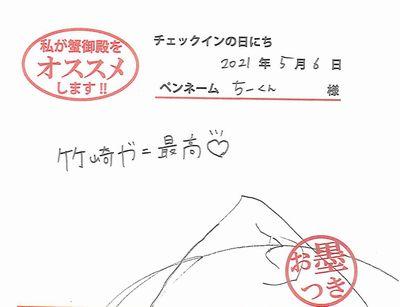 私が蟹御殿を
オススメ
します!!
チェックインの日にち
2021年5月6日
ペンネーム ちーくん 様
竹崎ガニ最高♡
お墨
つき